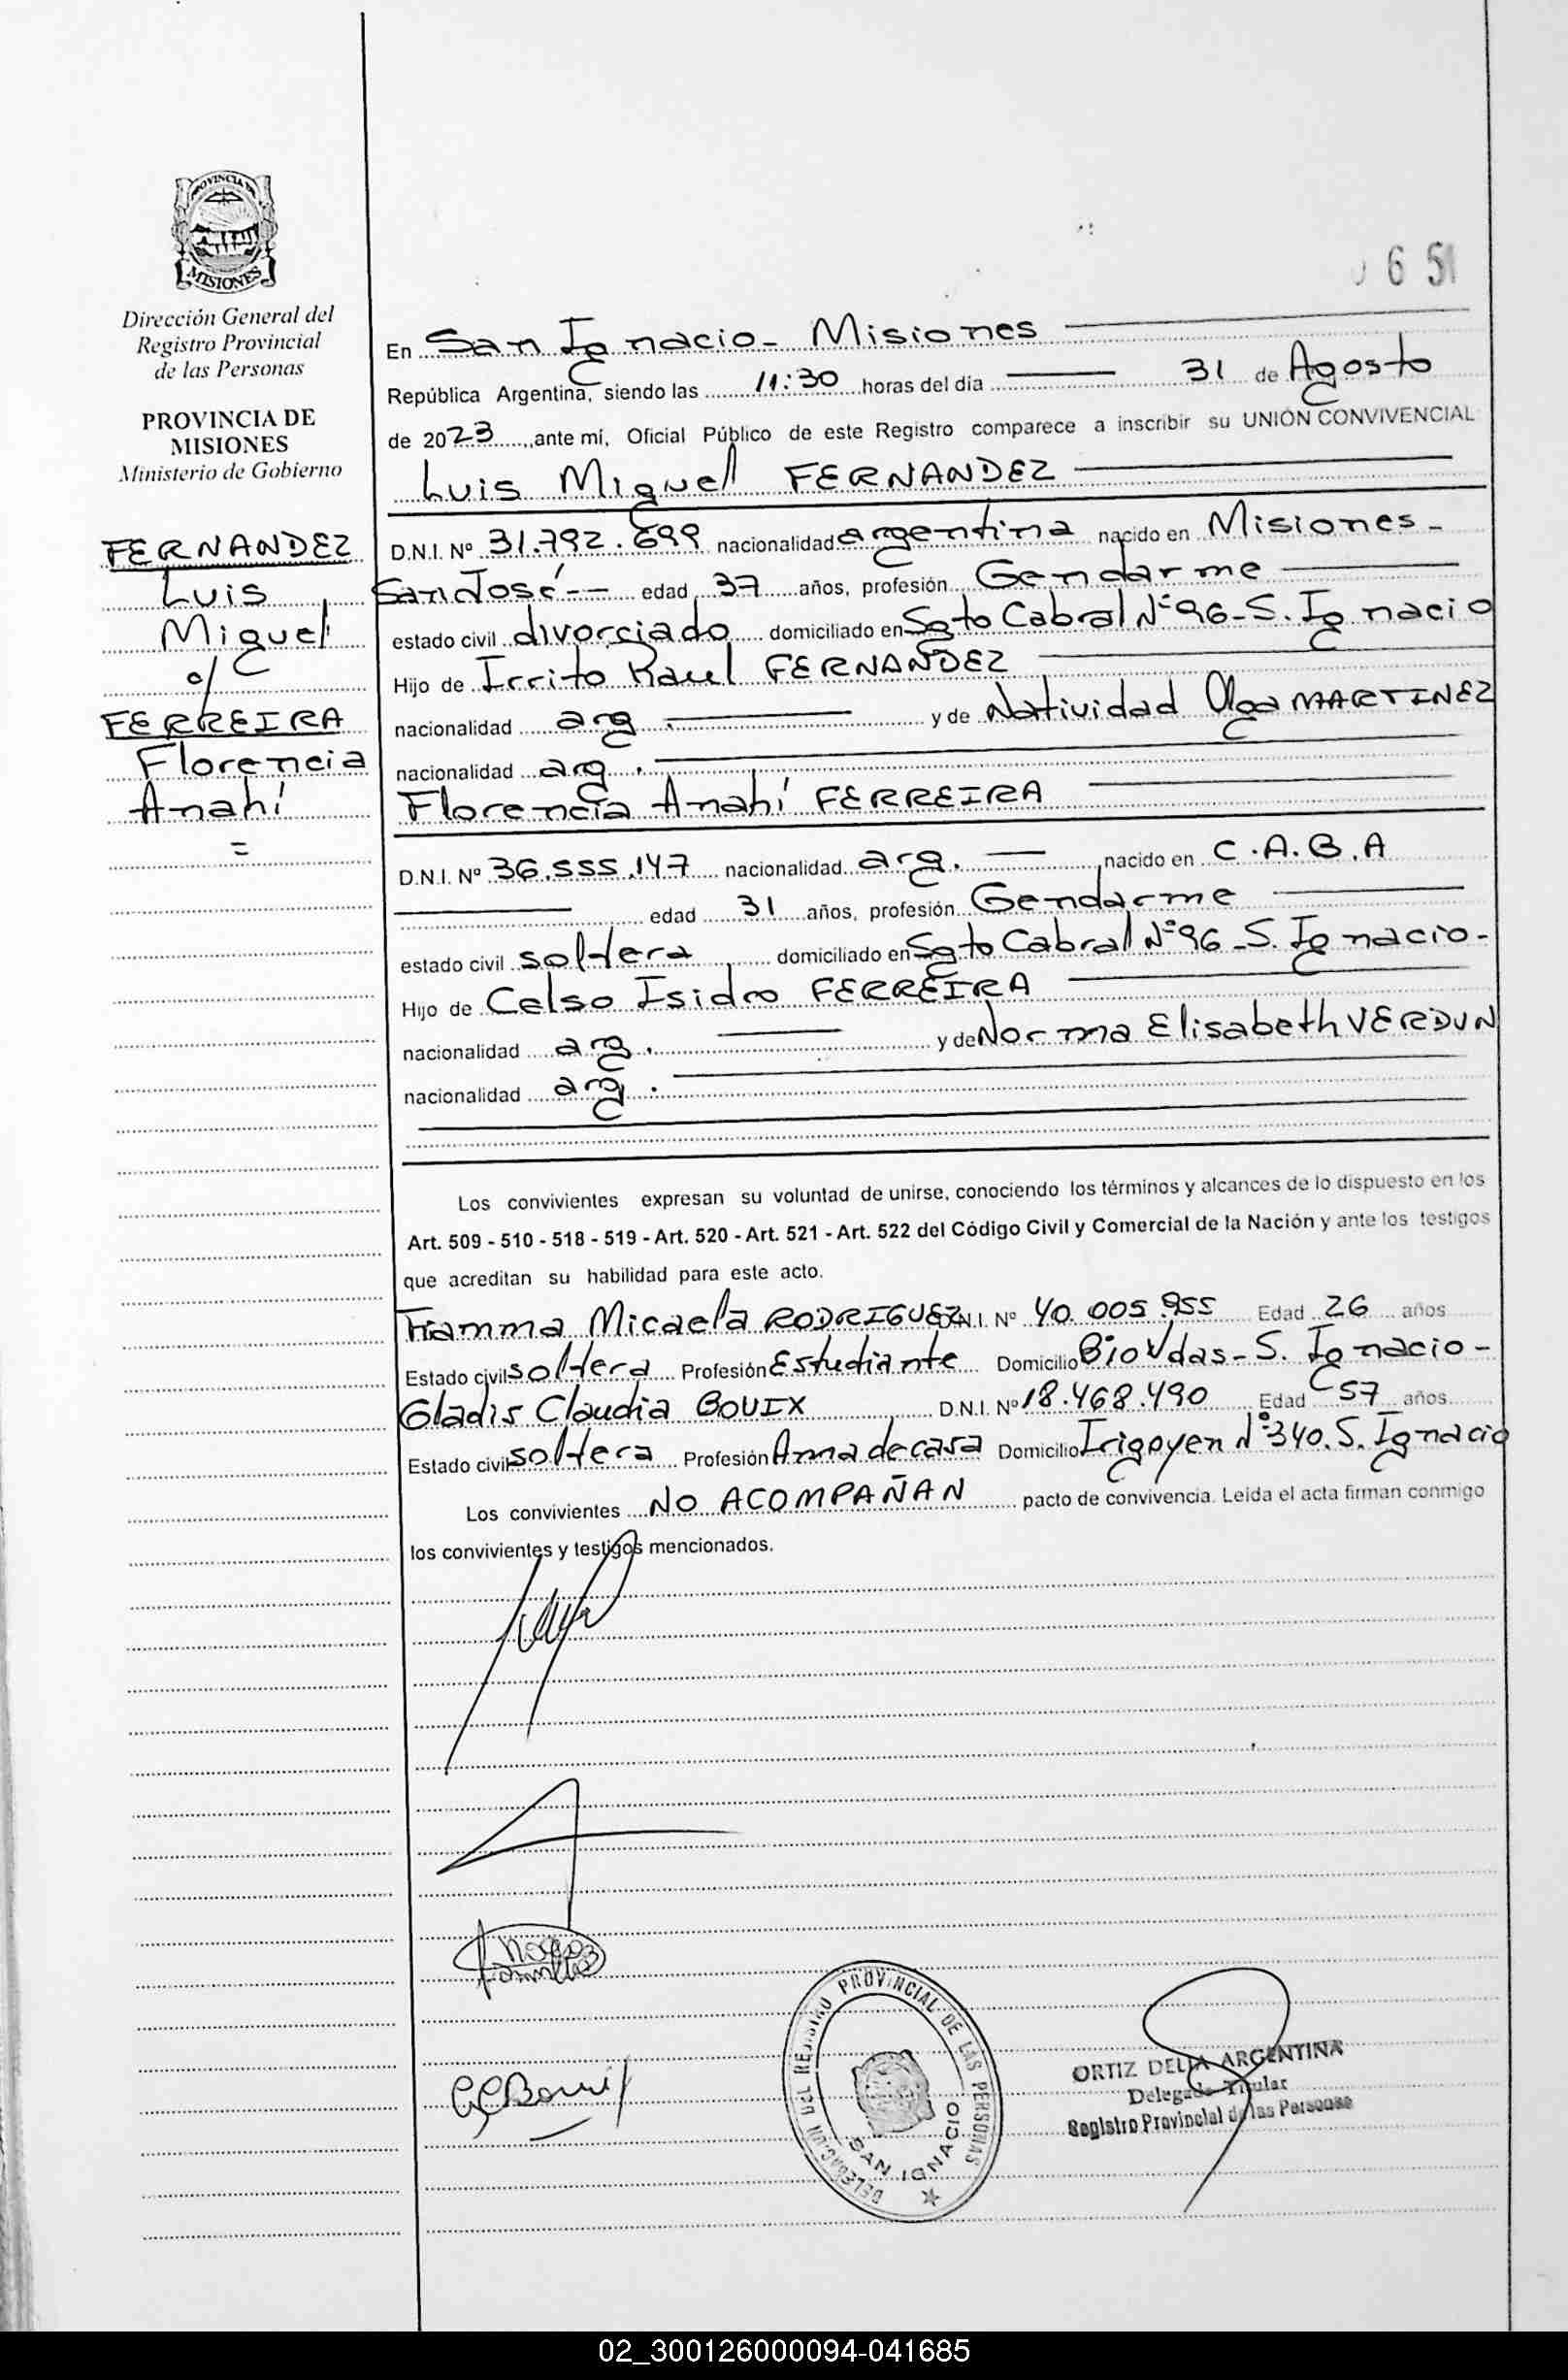 PROVINCIA DE
MISIONES
Dirección General del
Registro Provincial
de las Personas
PROVINCIA DE
MISIONES
Ministerio de Gobierno
FERNANDEZ
Luis
Miguel
c/
FERREIRA
Florencia
Anahí
=
651
En San Ignacio - Misiones
República Argentina, siendo las 11:30 horas del día 31 de Agosto
de 2023, ante mí, Oficial Público de este Registro comparece a inscribir su UNIÓN CONVIVENCIAL
Luis Miguel FERNANDEZ
D.N.I. Nº 31.792.699 nacionalidad argentina nacido en Misiones -
San José -- edad 37 años, profesión Gendarme
estado civil divorciado domiciliado en Sgto Cabral Nº 96 - S. Ignacio
Hijo de Irrito Raul FERNANDEZ
nacionalidad arg y de Natividad Olga MARTINEZ
nacionalidad arg.
Florencia Anahí FERREIRA
D.N.I. Nº 36.555.147 nacionalidad arg. nacido en C.A.B.A
edad 31 años, profesión Gendarme
estado civil soltera domiciliado en Sgto Cabral Nº 96 - S. Ignacio -
Hijo de Celso Isidro FERREIRA
nacionalidad arg. y de Norma Elisabeth VERDUN
nacionalidad arg.
Los convivientes expresan su voluntad de unirse, conociendo los términos y alcances de lo dispuesto en los
Art. 509 - 510 - 518 - 519 - Art. 520 - Art. 521 - Art. 522 del Código Civil y Comercial de la Nación y ante los testigos
que acreditan su habilidad para este acto.
Fiamma Micaela RODRIGUEZ D.N.I. Nº 40.005.955 Edad 26 años
Estado civil soltera Profesión Estudiante Domicilio Bio Vdas - S. Ignacio -
Gladis Claudia BOUIX D.N.I. Nº 18.468.490 Edad 57 años
Estado civil soltera Profesión Ama de casa Domicilio Irigoyen Nº 340. S. Ignacio
Los convivientes NO ACOMPAÑAN pacto de convivencia. Leída el acta firman conmigo
los convivientes y testigos mencionados.
DELEGACION DEL REGISTRO PROVINCIAL DE LAS PERSONAS
SAN IGNACIO
ORTIZ DELIA ARGENTINA
Delegada Titular
Registro Provincial de las Personas
02_300126000094-041685